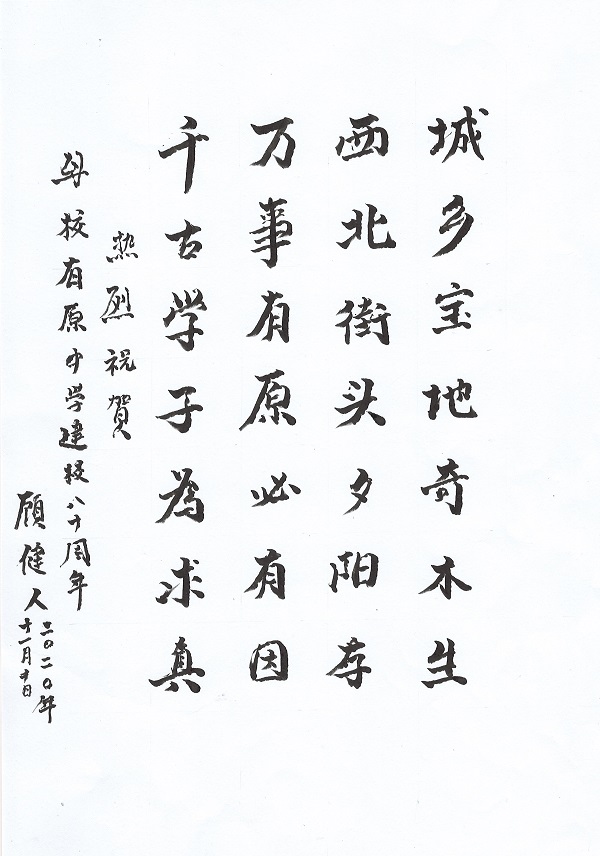 城乡宝地奇木生
西北街头夕阳存
万事有原必有因
千古学子為求真
热烈祝賀
母校有原中学建校八十周年
顾健人
二〇二〇年
十一月十日